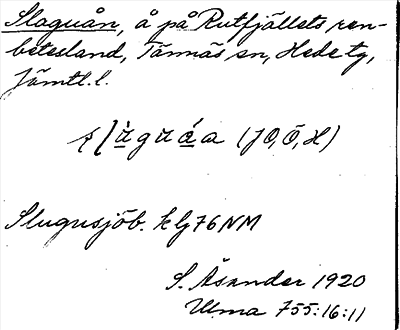 Slaguån, å på Rutfjällets ren-
betesland, Tännäs sn, Hede tg,
Jämtl. l.
(JO, Ö, H)
Slugusjöb. kbg 76 NM
S. Åsander 1920
Ulma 755:16:11